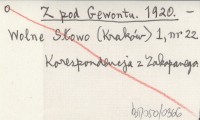 Z pod Gewontu. 1920. -
Wolne Słowo (Kraków) 1, nr 22
Korespondencja z Zakopanego.